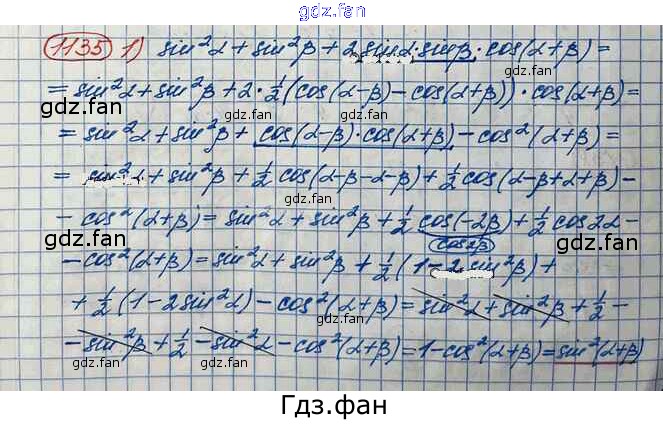 gdz.fan
1135 1) sin²α + sin²β + 2 sinα · sinβ · cos(α+β) =
= sin²α + sin²β + 2 · ½ (cos(α-β) - cos(α+β)) · cos(α+β) =
gdz.fan gdz.fan
= sin²α + sin²β + cos(α-β) · cos(α+β) - cos²(α+β) =
gdz.fan
= sin²α + sin²β + ½ cos(α-β-α-β) + ½ cos(α-β+α+β) -
- cos²(α+β) = sin²α + sin²β + ½ cos(-2β) + ½ cos2α -
gdz.fan gdz.fan
cos2β
- cos²(α+β) = sin²α + sin²β + ½ (1 - 2 sin²β) +
gdz.fan
+ ½ (1 - 2sin²α) - cos²(α+β) = sin²α + sin²β + ½ -
- sin²β + ½ - sin²α - cos²(α+β) = 1 - cos²(α+β) = sin²(α+β)
gdz.fan gdz.fan
Гдз.фан